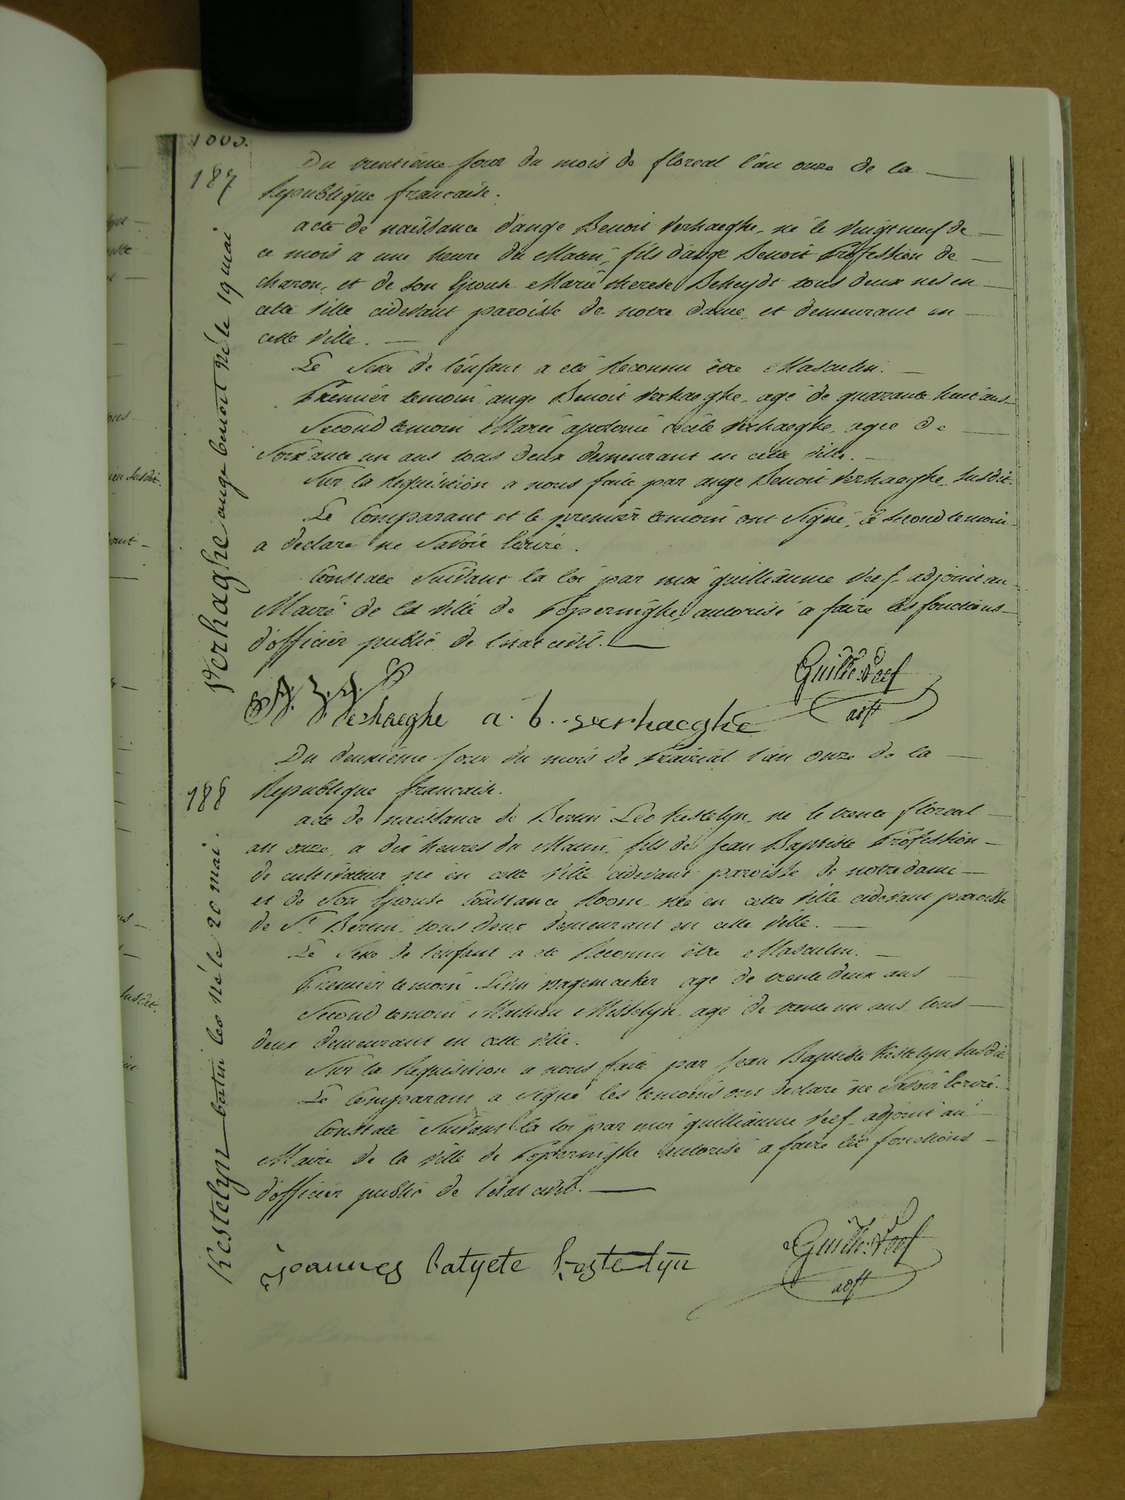 1803.
187
Du trentieme jour du mois de floreal l'an onze de la
Republique francaise.
acte de naissance d'ange Benoit Verhaeghe, né le vingt neuf de
ce mois a une heure du Matin, fils d'ange Benoit Profession de
charon, et de son Epouse Marie therese Deheydt tous deux nés en
cette Ville cidevant paroisse de notre dame et demeurant en
cette Ville.
Le Sexe de l'enfant a été Reconnu être Masculin.
Premier temoin ange Benoit Verhaeghe, agé de quarante huit ans
Second temoin Marie apolonie cécile Verhaeghe, agée de
Soixante un ans tous deux demeurant en cette Ville.
Sur la Requisition a nous faite par ange Benoit Verhaeghe Susdit.
Le Comparant et le premier temoin ont Signé, le second temoin
a declaré ne Savoir Ecrire.
Constaté Suivant la loi par moi guilliaume Veef adjoint au
Maire de la Ville de Poperinghe autorisé a faire les fonctions
d'officier public de l'etat civil.
Verhaeghe ange benoit Né le 19 mai
Guill: Veef
adjt
Verhaeghe a. b. verhaeghe
188
Du deuxième jour du mois de Prairial l'an onze de la
Republique francaise.
acte de naissance de Bertin Léo Kestelyn, né le trente floreal
an onze, a dix heures du Matin, fils de Jean Baptiste Profession
de cultivateur né en cette Ville cidevant paroisse de notre dame
et de Son Epouse Constance née en cette Ville cidevant paroisse
de St. Bertin, tous deux demeurant en cette Ville.
Le Sexe de l'enfant a été Reconnu être Masculin.
Premier temoin wagemaeker agé de trente deux ans
Second temoin Mathieu agé de trente un ans tous
deux demeurant en cette Ville.
Sur la Requisition a nous faite par Jean Baptiste Kestelyn Susdit
Le Comparant a Signé les temoins ont declaré ne Savoir Ecrire.
Constaté Suivant la loi par moi guilliaume Veef adjoint au
Maire de la Ville de Poperinghe autorisé a faire les fonctions
d'officier public de l'etat civil.
Kestelyn bertin leo Né le 20 mai
Guill: Veef
adjt
joannes batyete kestelyn